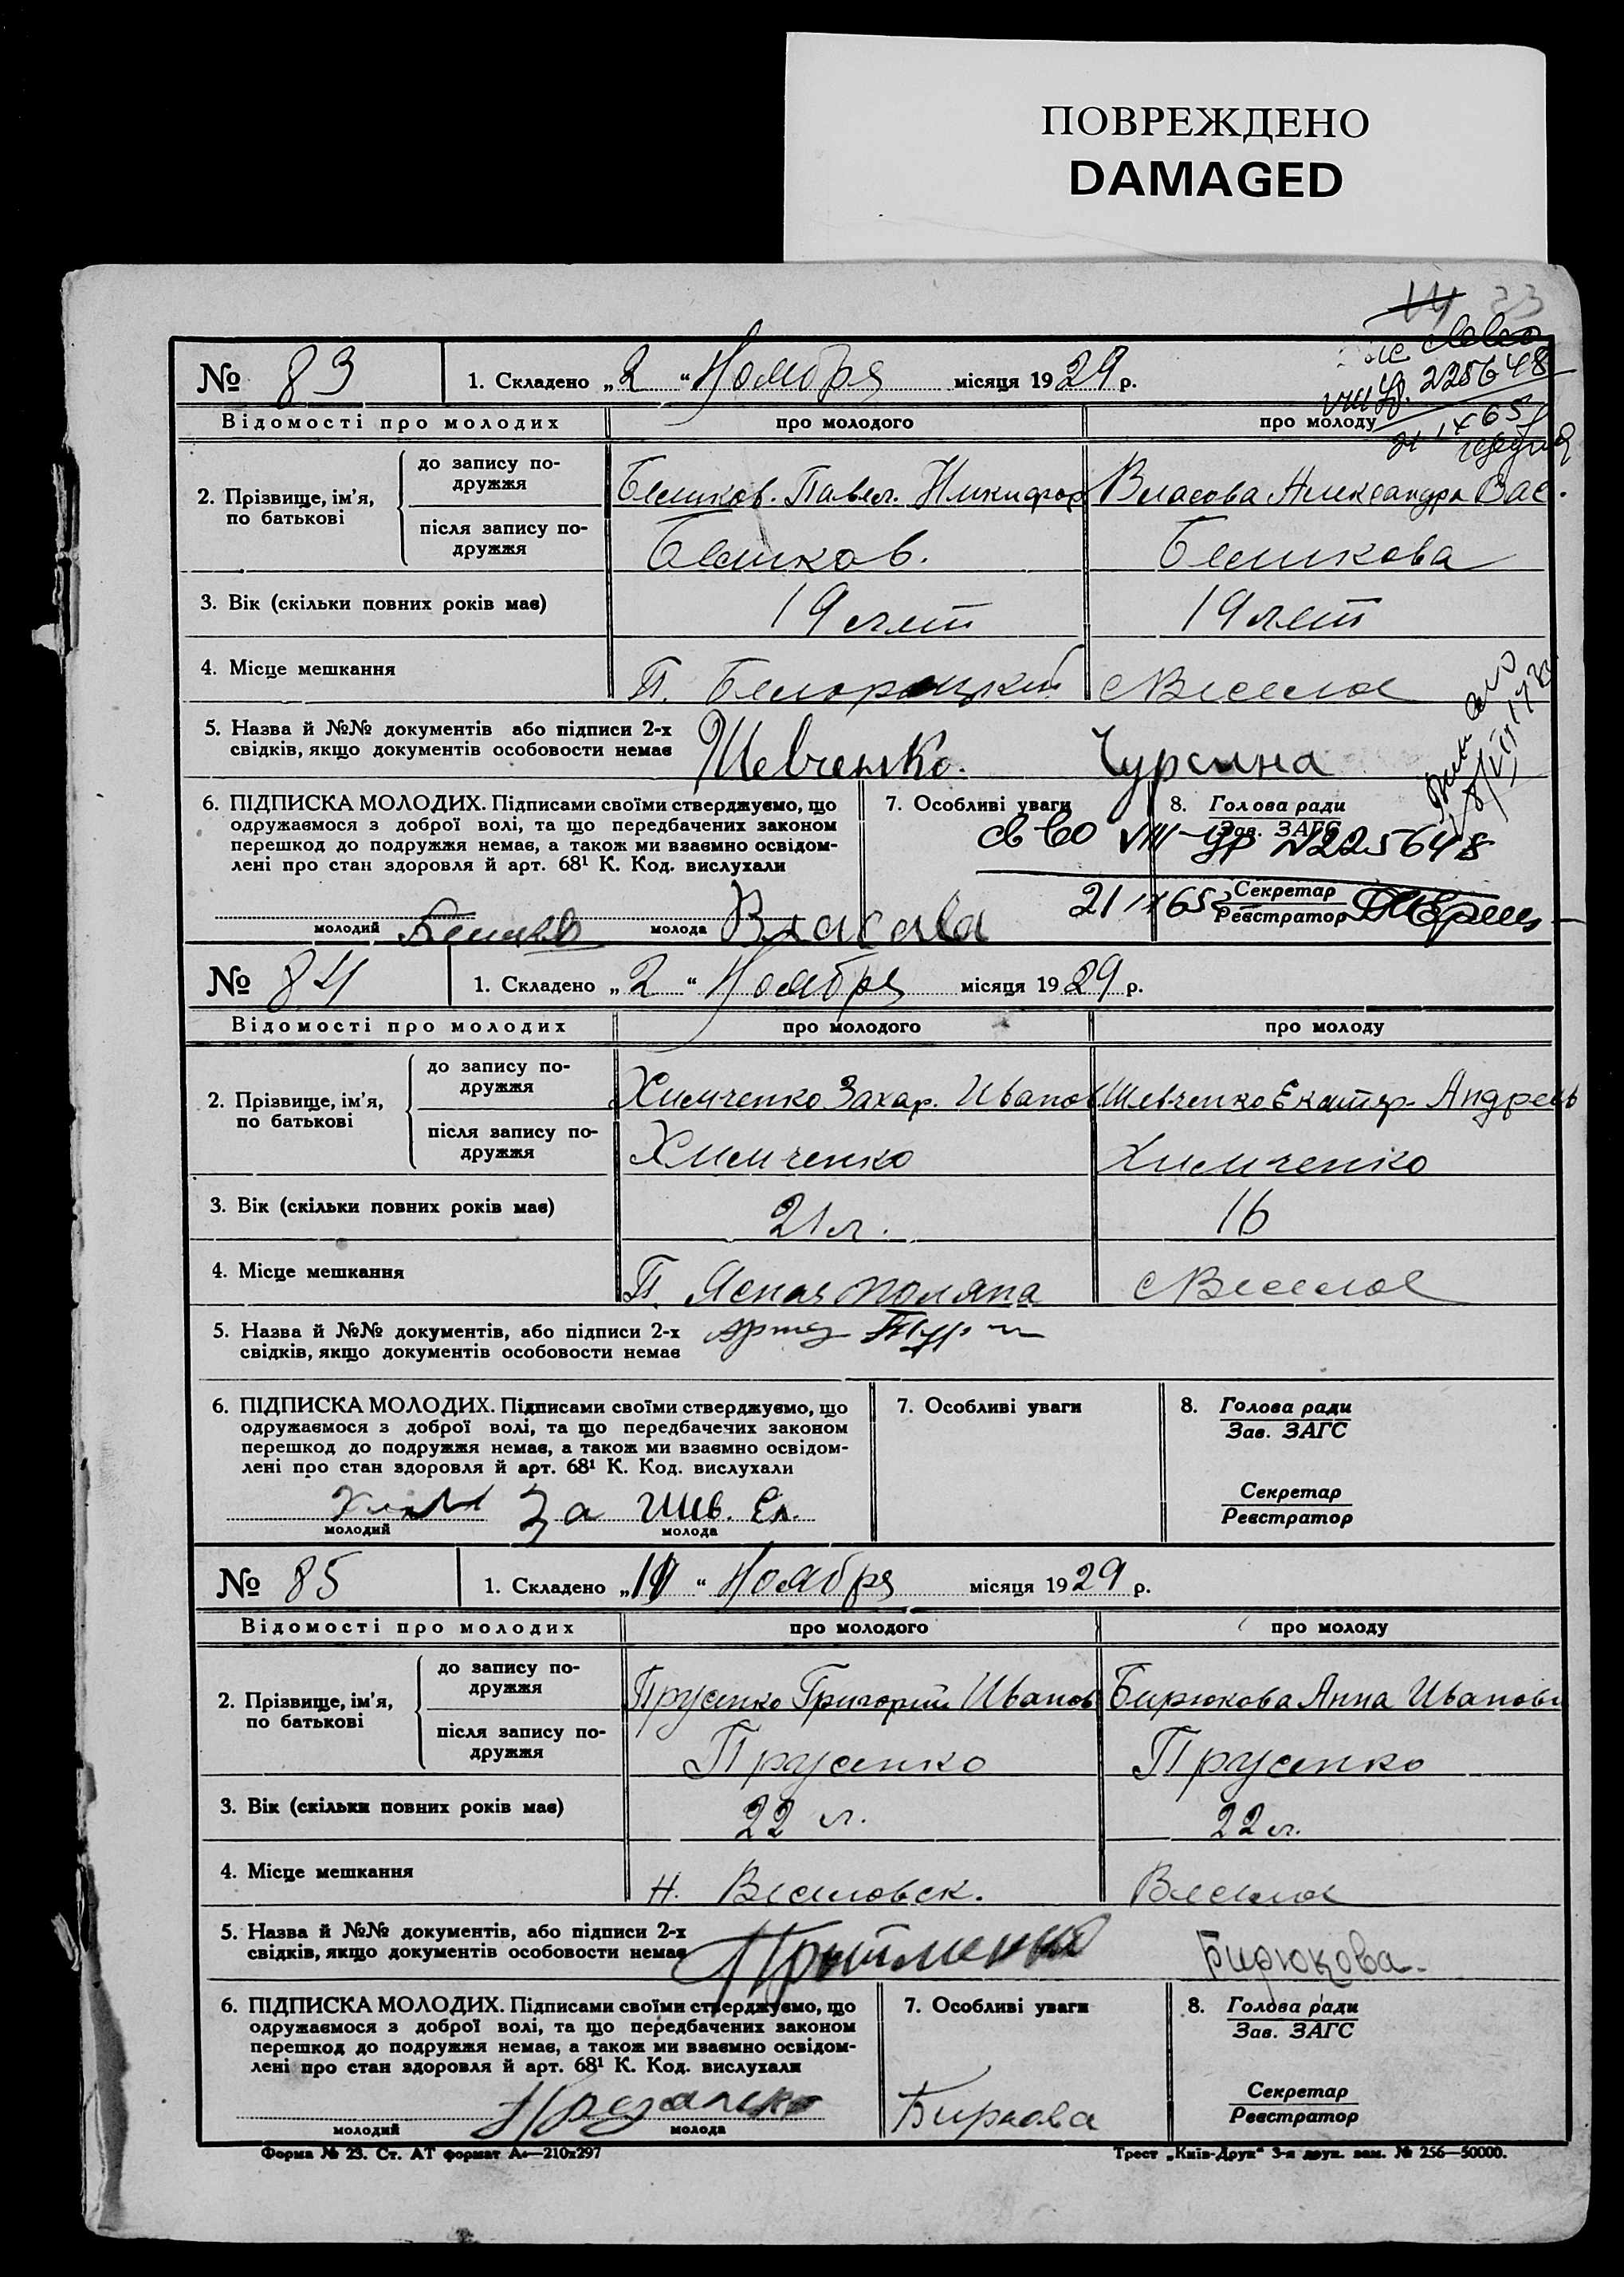 ПОВРЕЖДЕНО
DAMAGED
14 23
№ 83 1. Складено „2“ Ноября місяця 1929 р.
225648
Відомості про молодих про молодого про молоду
2. Прізвище, ім’я, по батькові
до запису по-
дружжя
Беликов. Павел. Никифор Власова Александра Вас.
після запису по-
дружжя
Беликов. Беликова
3. Вік (скільки повних років має) 19 лет 19 лет
4. Місце мешкання П. Белорецкий с Веселое
5. Назва й №№ документів або підписи 2-х
свідків, якщо документів особовости немає
Шевченко. Чурсина
6. ПІДПИСКА МОЛОДИХ. Підписами своїми стверджуємо, що
одружаємося з доброї волі, та що передбачених законом
перешкод до подружжя немає, а також ми взаємно освідом-
лені про стан здоровля й арт. 68¹ К. Код. вислухали
молодий молода Власова
7. Особливі уваги
8. Голова ради
Зав. ЗАГС
св во VIII-УР №225648
21 IX 65
Секретар
Реєстратор
№ 84 1. Складено „2“ Ноября місяця 1929 р.
Відомості про молодих про молодого про молоду
2. Прізвище, ім’я,
по батькові
до запису по-
дружжя
Химченко Захар. Иванов Шевченко Екатер. Андреев
після запису по-
дружжя
Химченко Химченко
3. Вік (скільки повних років має) 21 л. 16
4. Місце мешкання П. Ясная поляна с Веселое
5. Назва й №№ документів, або підписи 2-х
свідків, якщо документів особовости немає
6. ПІДПИСКА МОЛОДИХ. Підписами своїми стверджуємо, що
одружаємося з доброї волі, та що передбачечих законом
перешкод до подружжя немає, а також ми взаємно освідом-
лені про стан здоровля й арт. 68¹ К. Код. вислухали
За Шев. Ек.
молодий молода
7. Особливі уваги
8. Голова ради
Зав. ЗАГС
Секретар
Реєстратор
№ 85 1. Складено Ноября місяця 1929 р.
Відомості про молодих про молодого про молоду
2. Прізвище, ім’я,
по батькові
до запису по-
дружжя
Прусенко Григорий Иванов Бирюкова Анна Иванов
після запису по-
дружжя
Прусенко Прусенко
3. Вік (скільки повних років має) 22 л. 22 л.
4. Місце мешкання Н. Веселовск. Веселое
5. Назва й №№ документів, або підписи 2-х
свідків, якщо документів особовости немає
Бирюкова.
6. ПІДПИСКА МОЛОДИХ. Підписами своїми стверджуємо, що
одружаємося з доброї волі, та що передбачених законом
перешкод до подружжя немає, а також ми взаємно освідом-
лені про стан здоровля й арт. 68¹ К. Код. вислухали
молодий молода
7. Особливі уваги
8. Голова ради
Зав. ЗАГС
Секретар
Реєстратор
Форма № 23. Ст. АТ формат А₄—210x297 Трест „Київ-Друк“ 3-я друк. зам. № 256—50000.